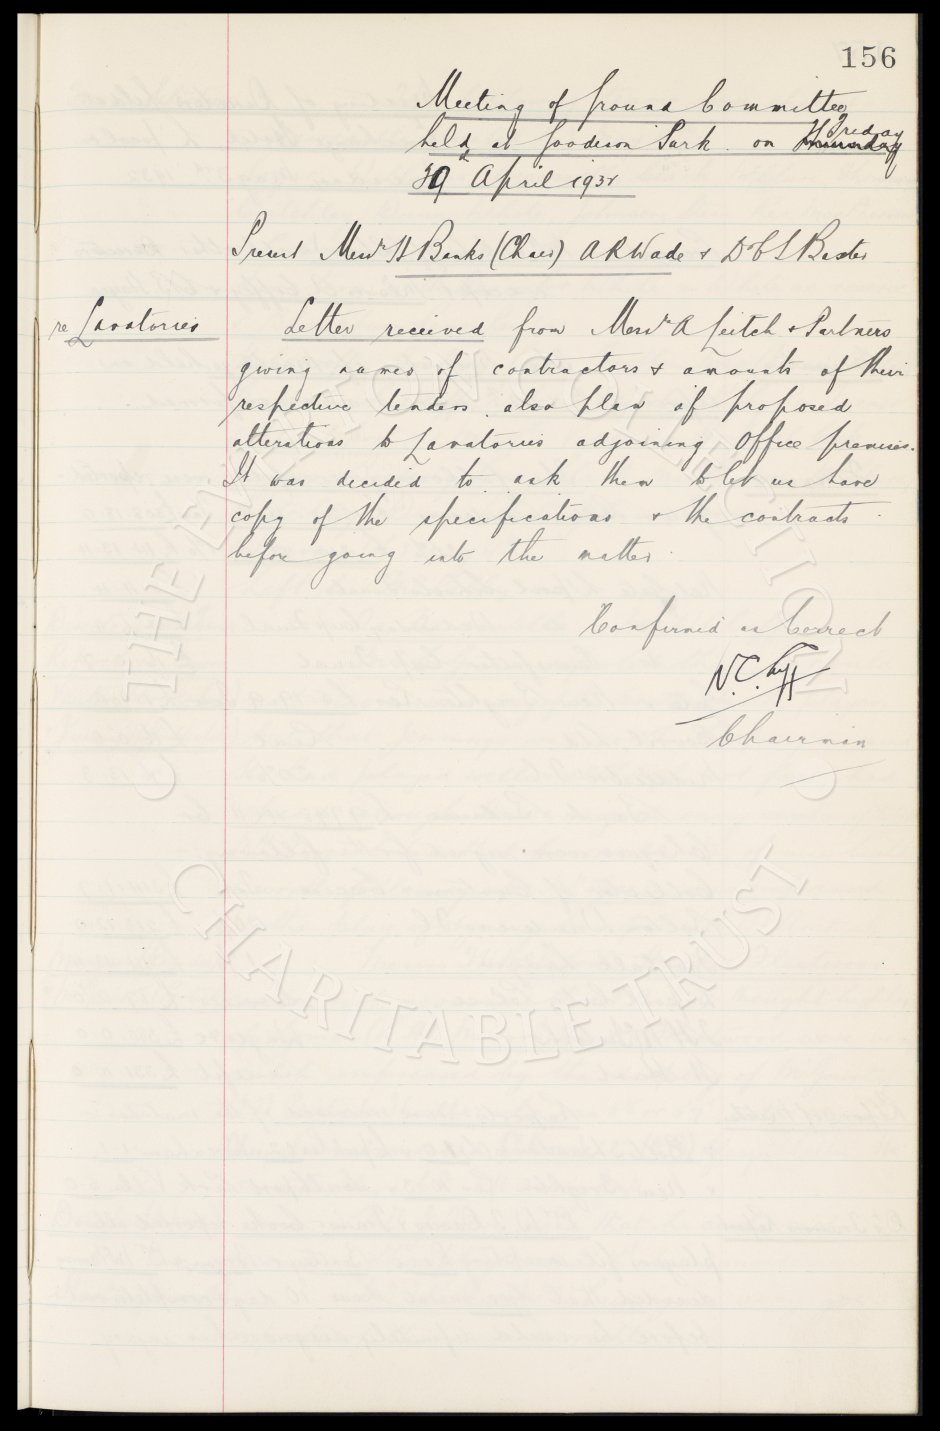 156
Meeting of Ground Committee
held at Goodison Park on Friday
29 April 1932
Present Messrs H Banks (Chair) A R Wade & Dr C S Baxter
re Lavatories
Letter received from Messrs A Leitch & Partners
giving names of contractors & amounts of their
respective tenders, also plan of proposed
alterations to Lavatories adjoining Office premises.
It was decided to ask them to let us have
copy of the specifications & the contracts
before going into the matter.
Confirmed as Correct
Chairman
THE EVERTON COLLECTION
CHARITABLE TRUST